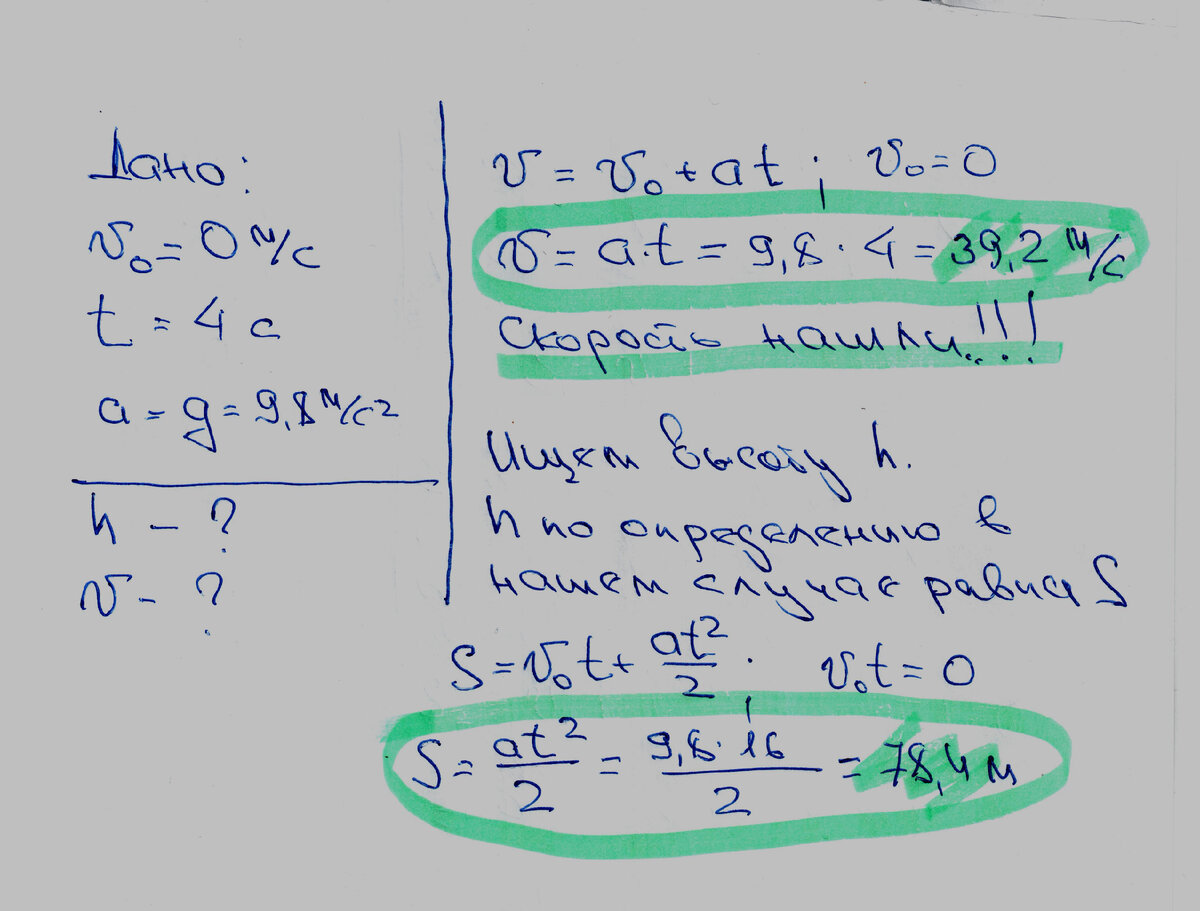 Дано:
v₀ = 0 м/с
t = 4 с
a = g = 9,8 м/с²
h - ?
v - ?
v = v₀ + at ; v₀ = 0
v = a·t = 9,8 · 4 = 39,2 м/с
Скорость нашли..!!!
Ищем высоту h.
h по определению в
нашем случае равна S
S = v₀t + at²/2 ; v₀t = 0
S = at²/2 = 9,8·16/2 = 78,4 м